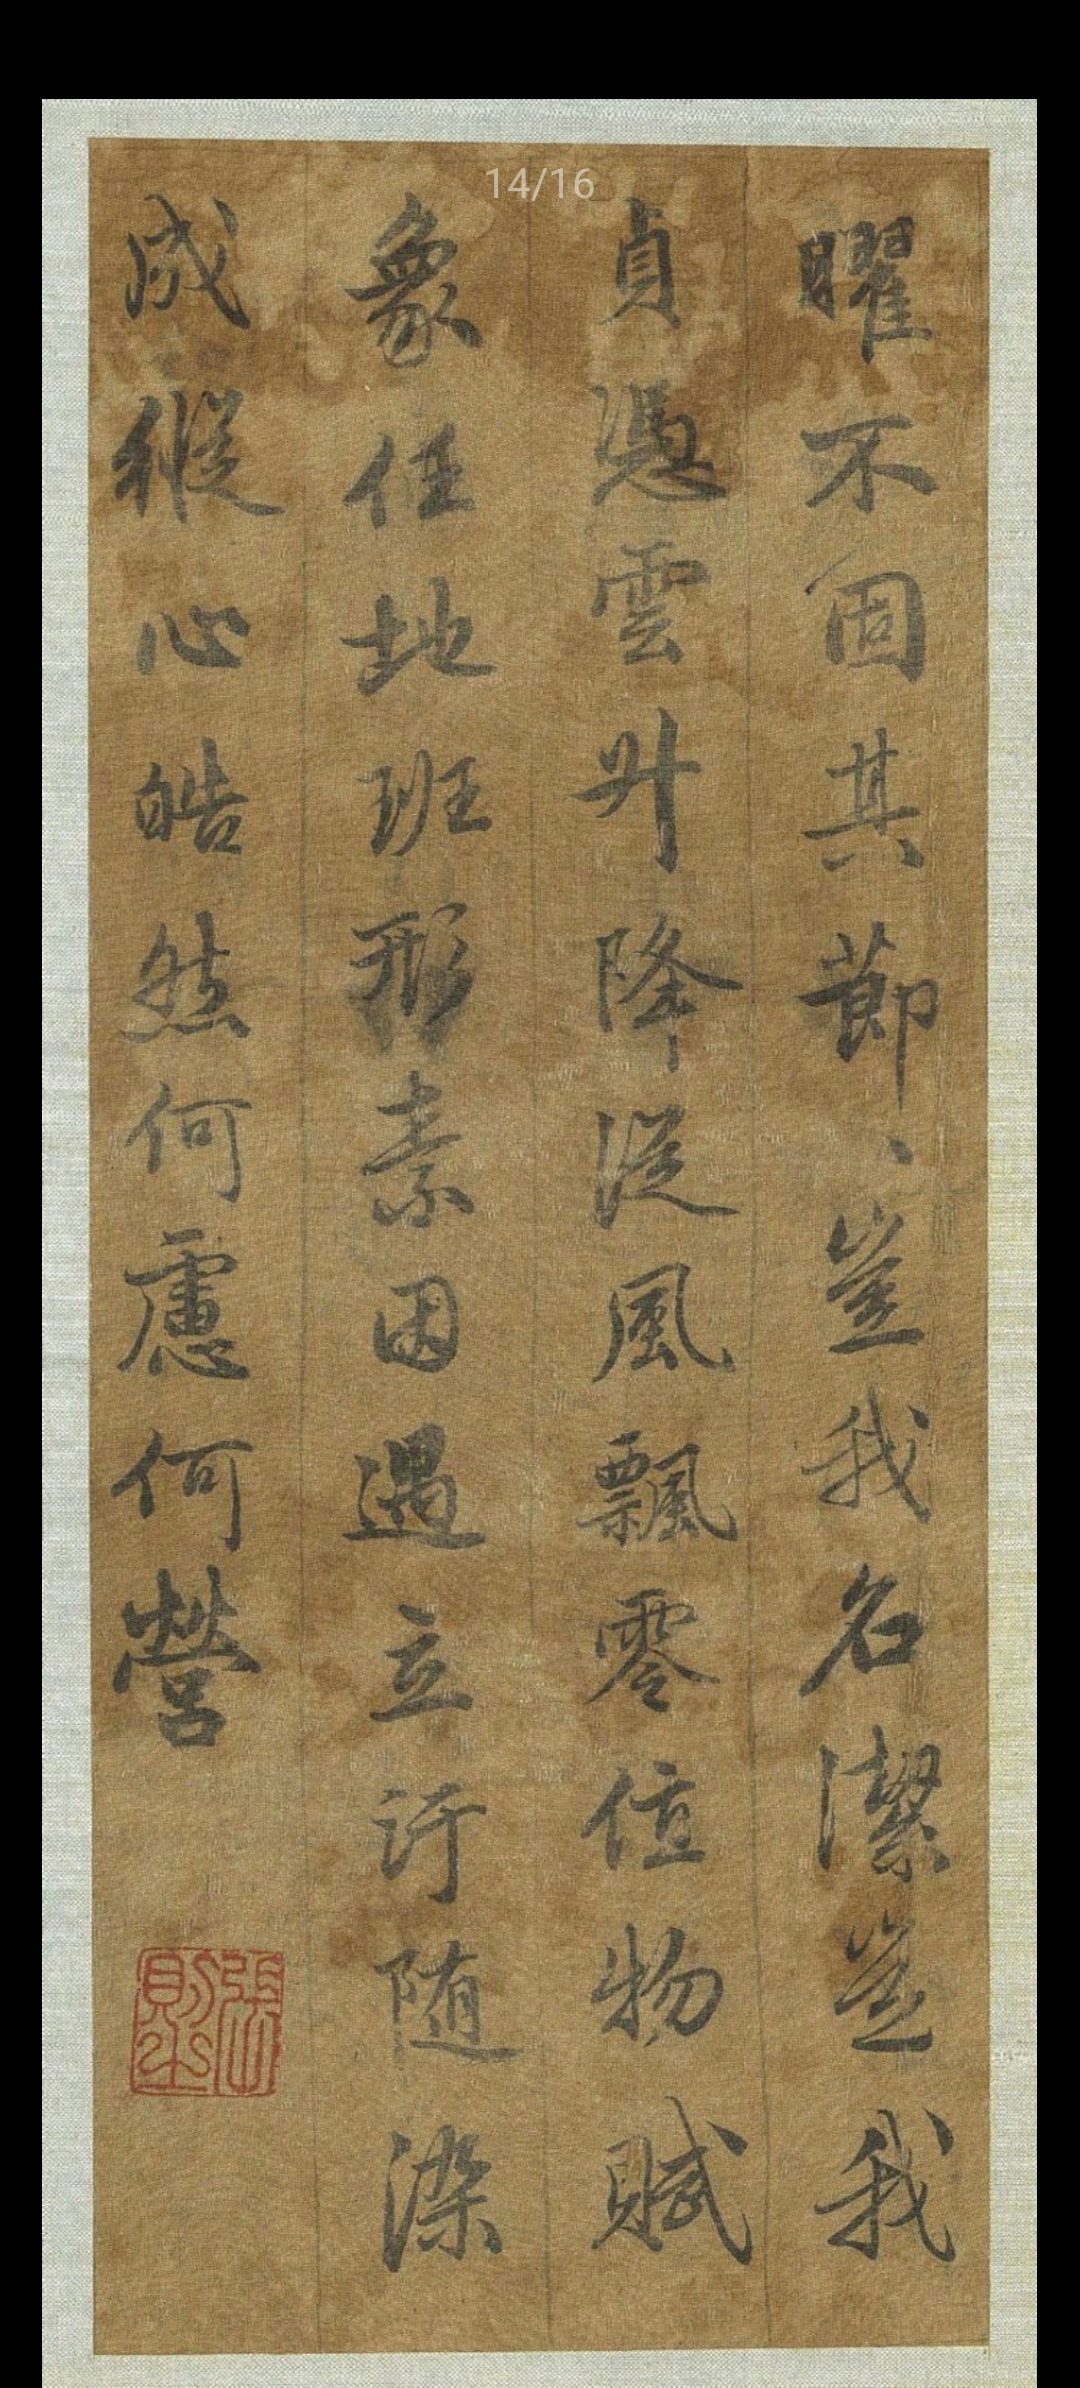 14/16
曜不固其節、豈我名潔豈我
貞憑雲升降從風飄零值物賦
象任地班形素因遇立汙隨染
成縱心皓然何慮何營
張則之